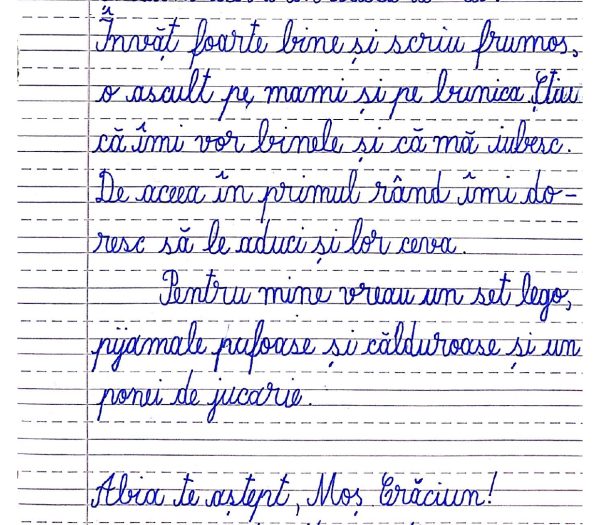 Învăț foarte bine și scriu frumos,
o ascult pe mami și pe bunica. Știu
că îmi vor binele și că mă iubesc.
De aceea în primul rând îmi do-
resc să le aduci și lor ceva.
Pentru mine vreau un set lego,
pijamale pufoase și călduroase și un
ponei de jucarie.
Abia te aștept, Moș Crăciun!